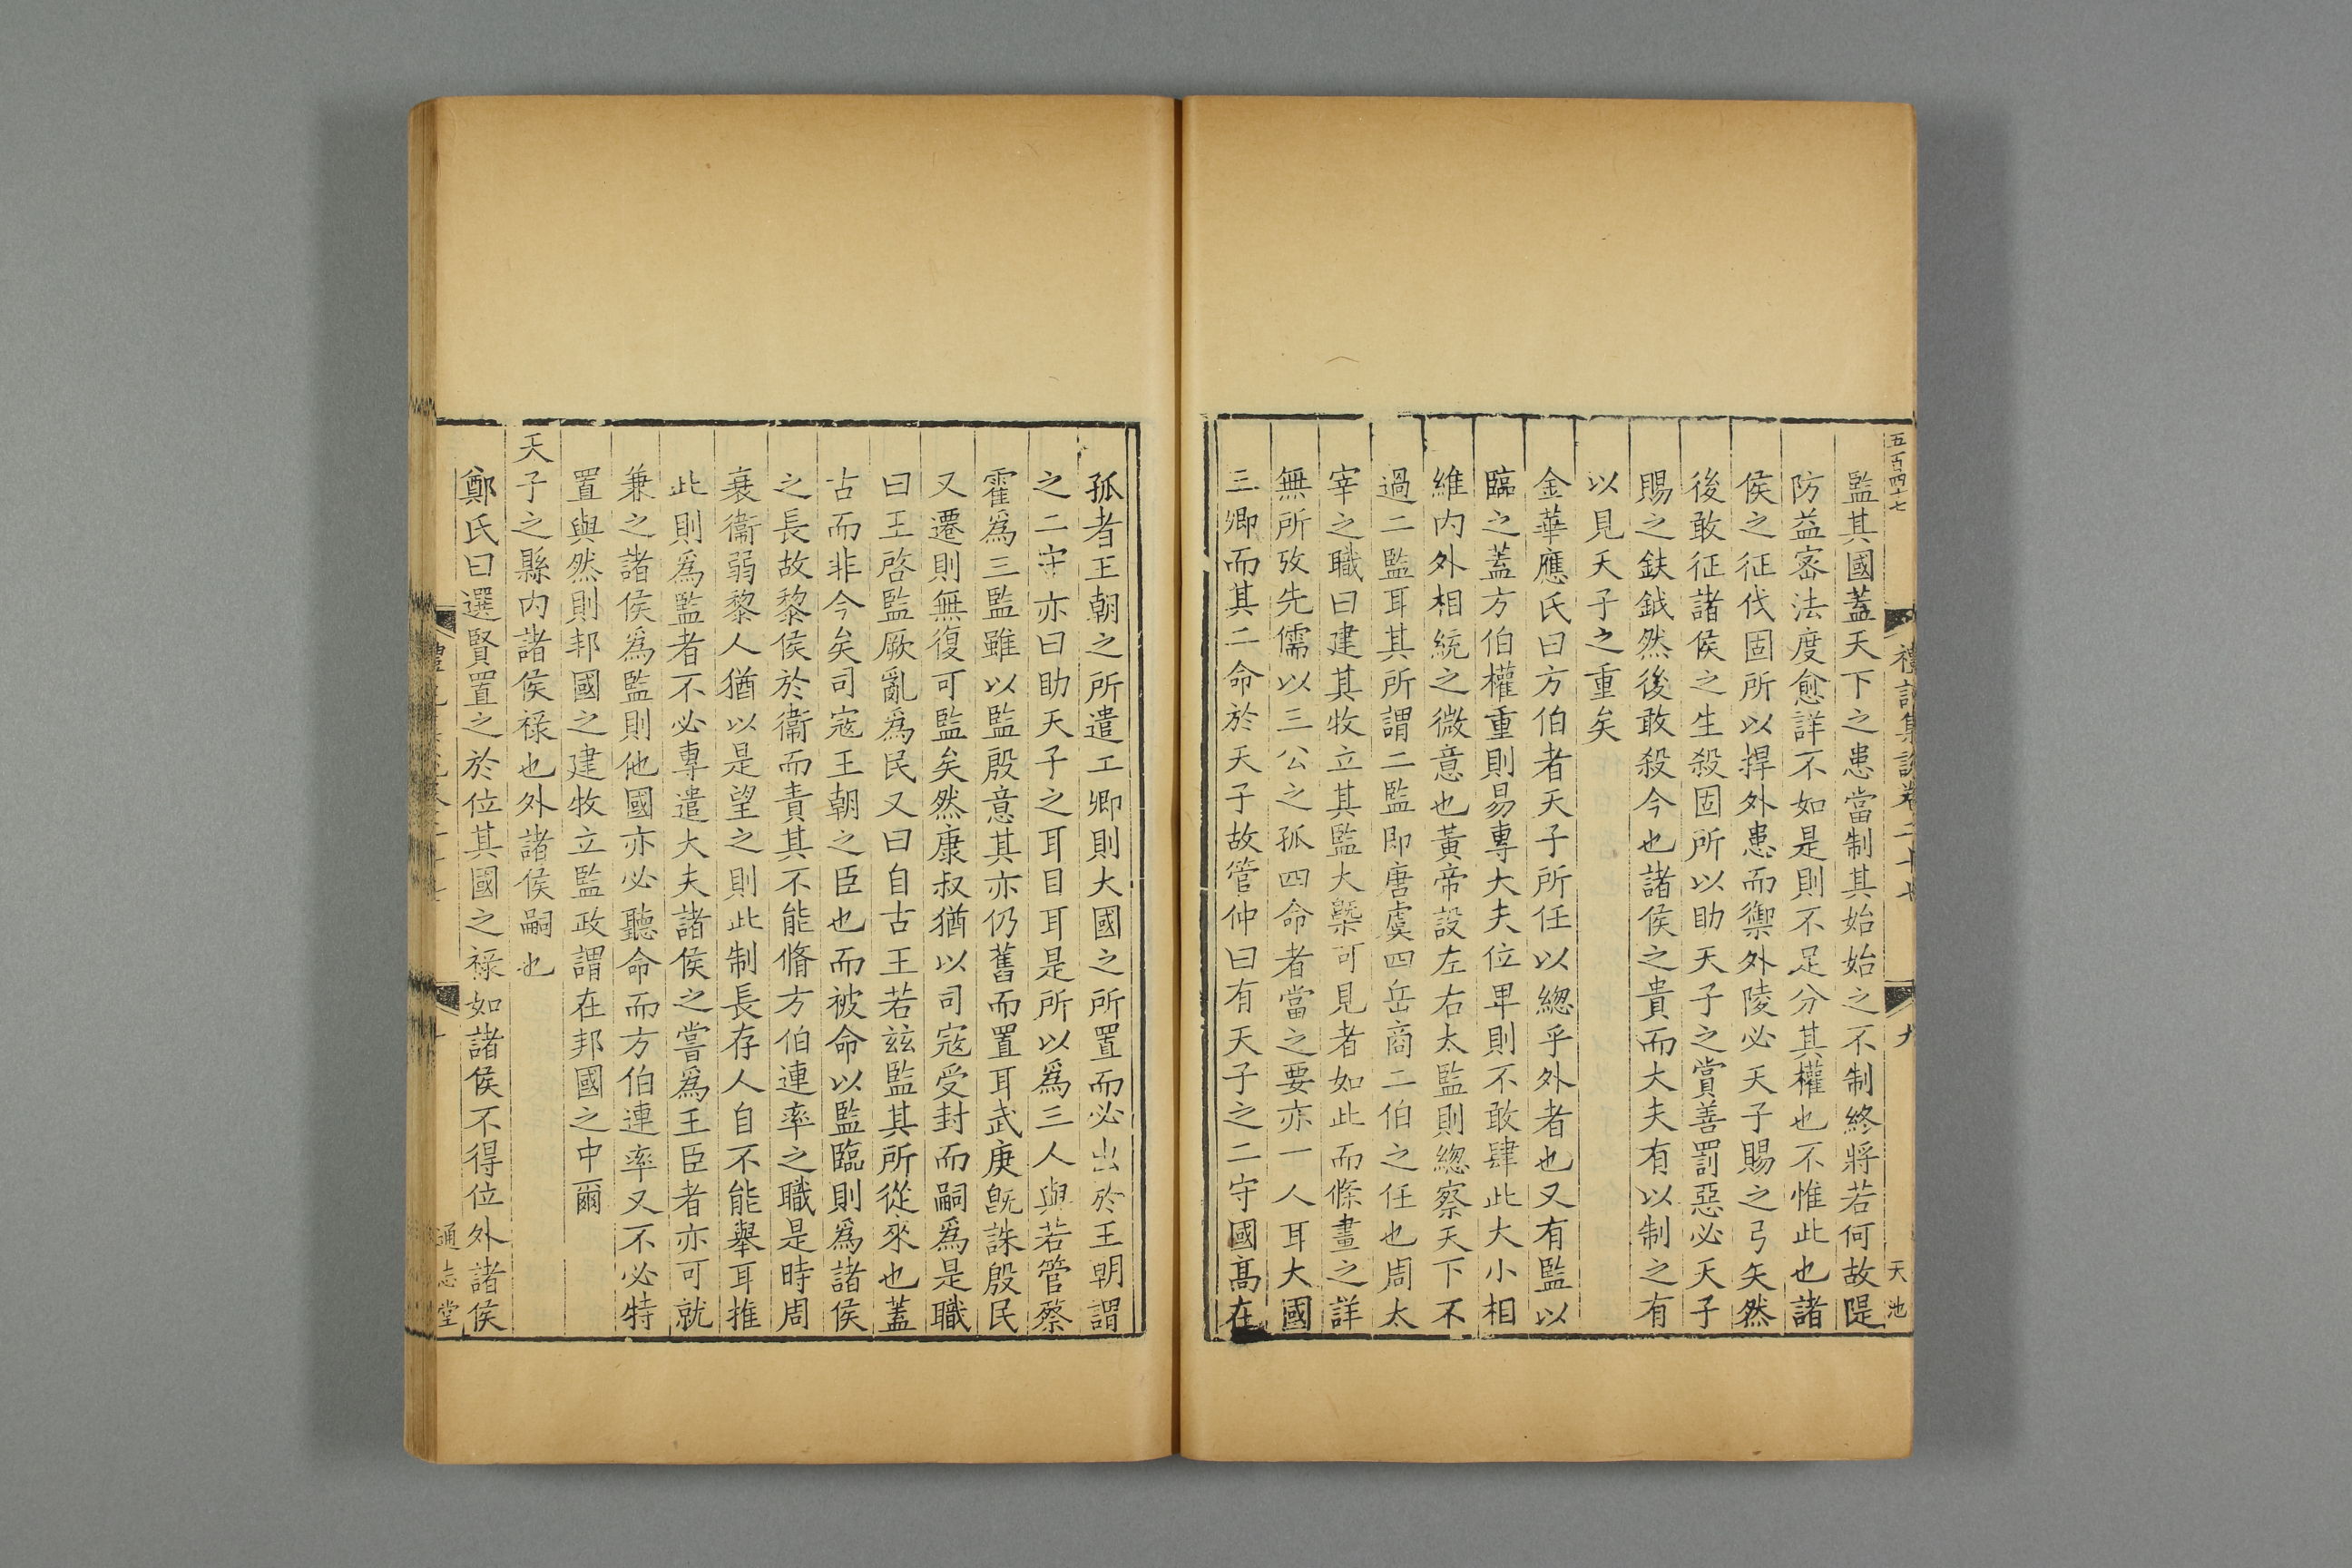 五百四十七
禮記集說卷二十七
九
天池
監其國蓋天下之患當制其始始之不制終將若何故隄
防益密法度愈詳不如是則不足分其權也不惟此也諸
侯之征伐固所以捍外患而禦外陵必天子賜之弓矢然
後敢征諸侯之生殺固所以助天子之賞善罰惡必天子
賜之鈇鉞然後敢殺今也諸侯之貴而大夫有以制之有
以見天子之重矣
金華應氏曰方伯者天子所任以緫乎外者也又有監以
臨之蓋方伯權重則易專大夫位卑則不敢肆此大小相
維內外相統之微意也黃帝設左右太監則緫察天下不
過二監耳其所謂二監即唐虞四岳商二伯之任也周太
宰之職曰建其牧立其監大槩可見者如此而條畫之詳
無所攷先儒以三公之孤四命者當之要亦一人耳大國
三卿而其二命於天子故管仲曰有天子之二守國髙在
孤者王朝之所遣二卿則大國之所置而必出於王朝謂
之二守亦曰助天子之耳目耳是所以爲三人與若管蔡
霍爲三監雖以監殷意其亦仍舊而置耳武庚旣誅殷民
又遷則無復可監矣然康叔猶以司寇受封而嗣爲是職
曰王啓監厥亂爲民又曰自古王若茲監其所從來也蓋
古而非今矣司寇王朝之臣也而被命以監臨則爲諸侯
之長故黎侯於衞而責其不能脩方伯連率之職是時周
衰衞弱黎人猶以是望之則此制長存人自不能舉耳推
此則爲監者不必專遣大夫諸侯之嘗爲王臣者亦可就
兼之諸侯爲監則他國亦必聽命而方伯連率又不必特
置與然則邦國之建牧立監政謂在邦國之中爾
天子之縣內諸侯祿也外諸侯嗣也
鄭氏曰選賢置之於位其國之祿如諸侯不得位外諸侯
十
通志堂